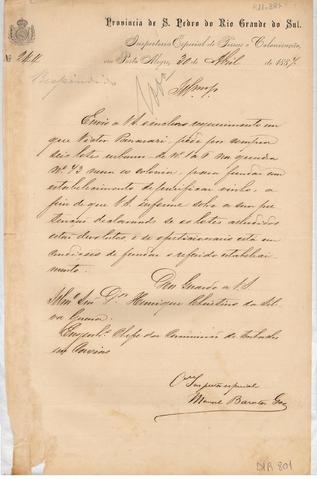 Provincia de S. Pedro do Rio Grande do Sul.
Inspectoria Especial de Terras e Colonisação,
Nº 244 em Porto Alegre, 30 de Abril de 1887.
Respondido
Envio a V.S. o incluso requerimento em
que Victor pede por compra
seis lotes urbanos de nº 1 a 9 na quadra
nº 73 nessa colonia, para fundar um
estabelecimento de fortificar vinho, a
fim de que V.S. informe sobre a sua pre
tenção declarando se os lotes alludidos
estão devolutos e se o peticionario está em
condições de fundar o referido estabeleci
mento.
Deus Guarde a V.S.
Illmo Snr Dr Henrique Christino da Sil
va
Chefe da Commissão de
em Caxias
O Inspector especial
Manoel
DIR 801